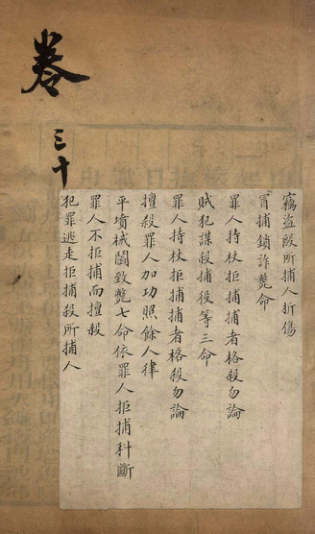 卷三十
竊盜毆所捕人折傷
冒捕鎖詐斃命
罪人持杖拒捕捕者格殺勿論
賊犯謀殺捕役等三命
罪人持杖拒捕捕者格殺勿論
擅殺罪人加功照餘人律
平墳械鬬致斃七命依罪人拒捕科斷
罪人不拒捕而擅殺
犯罪逃走拒捕殺所捕人